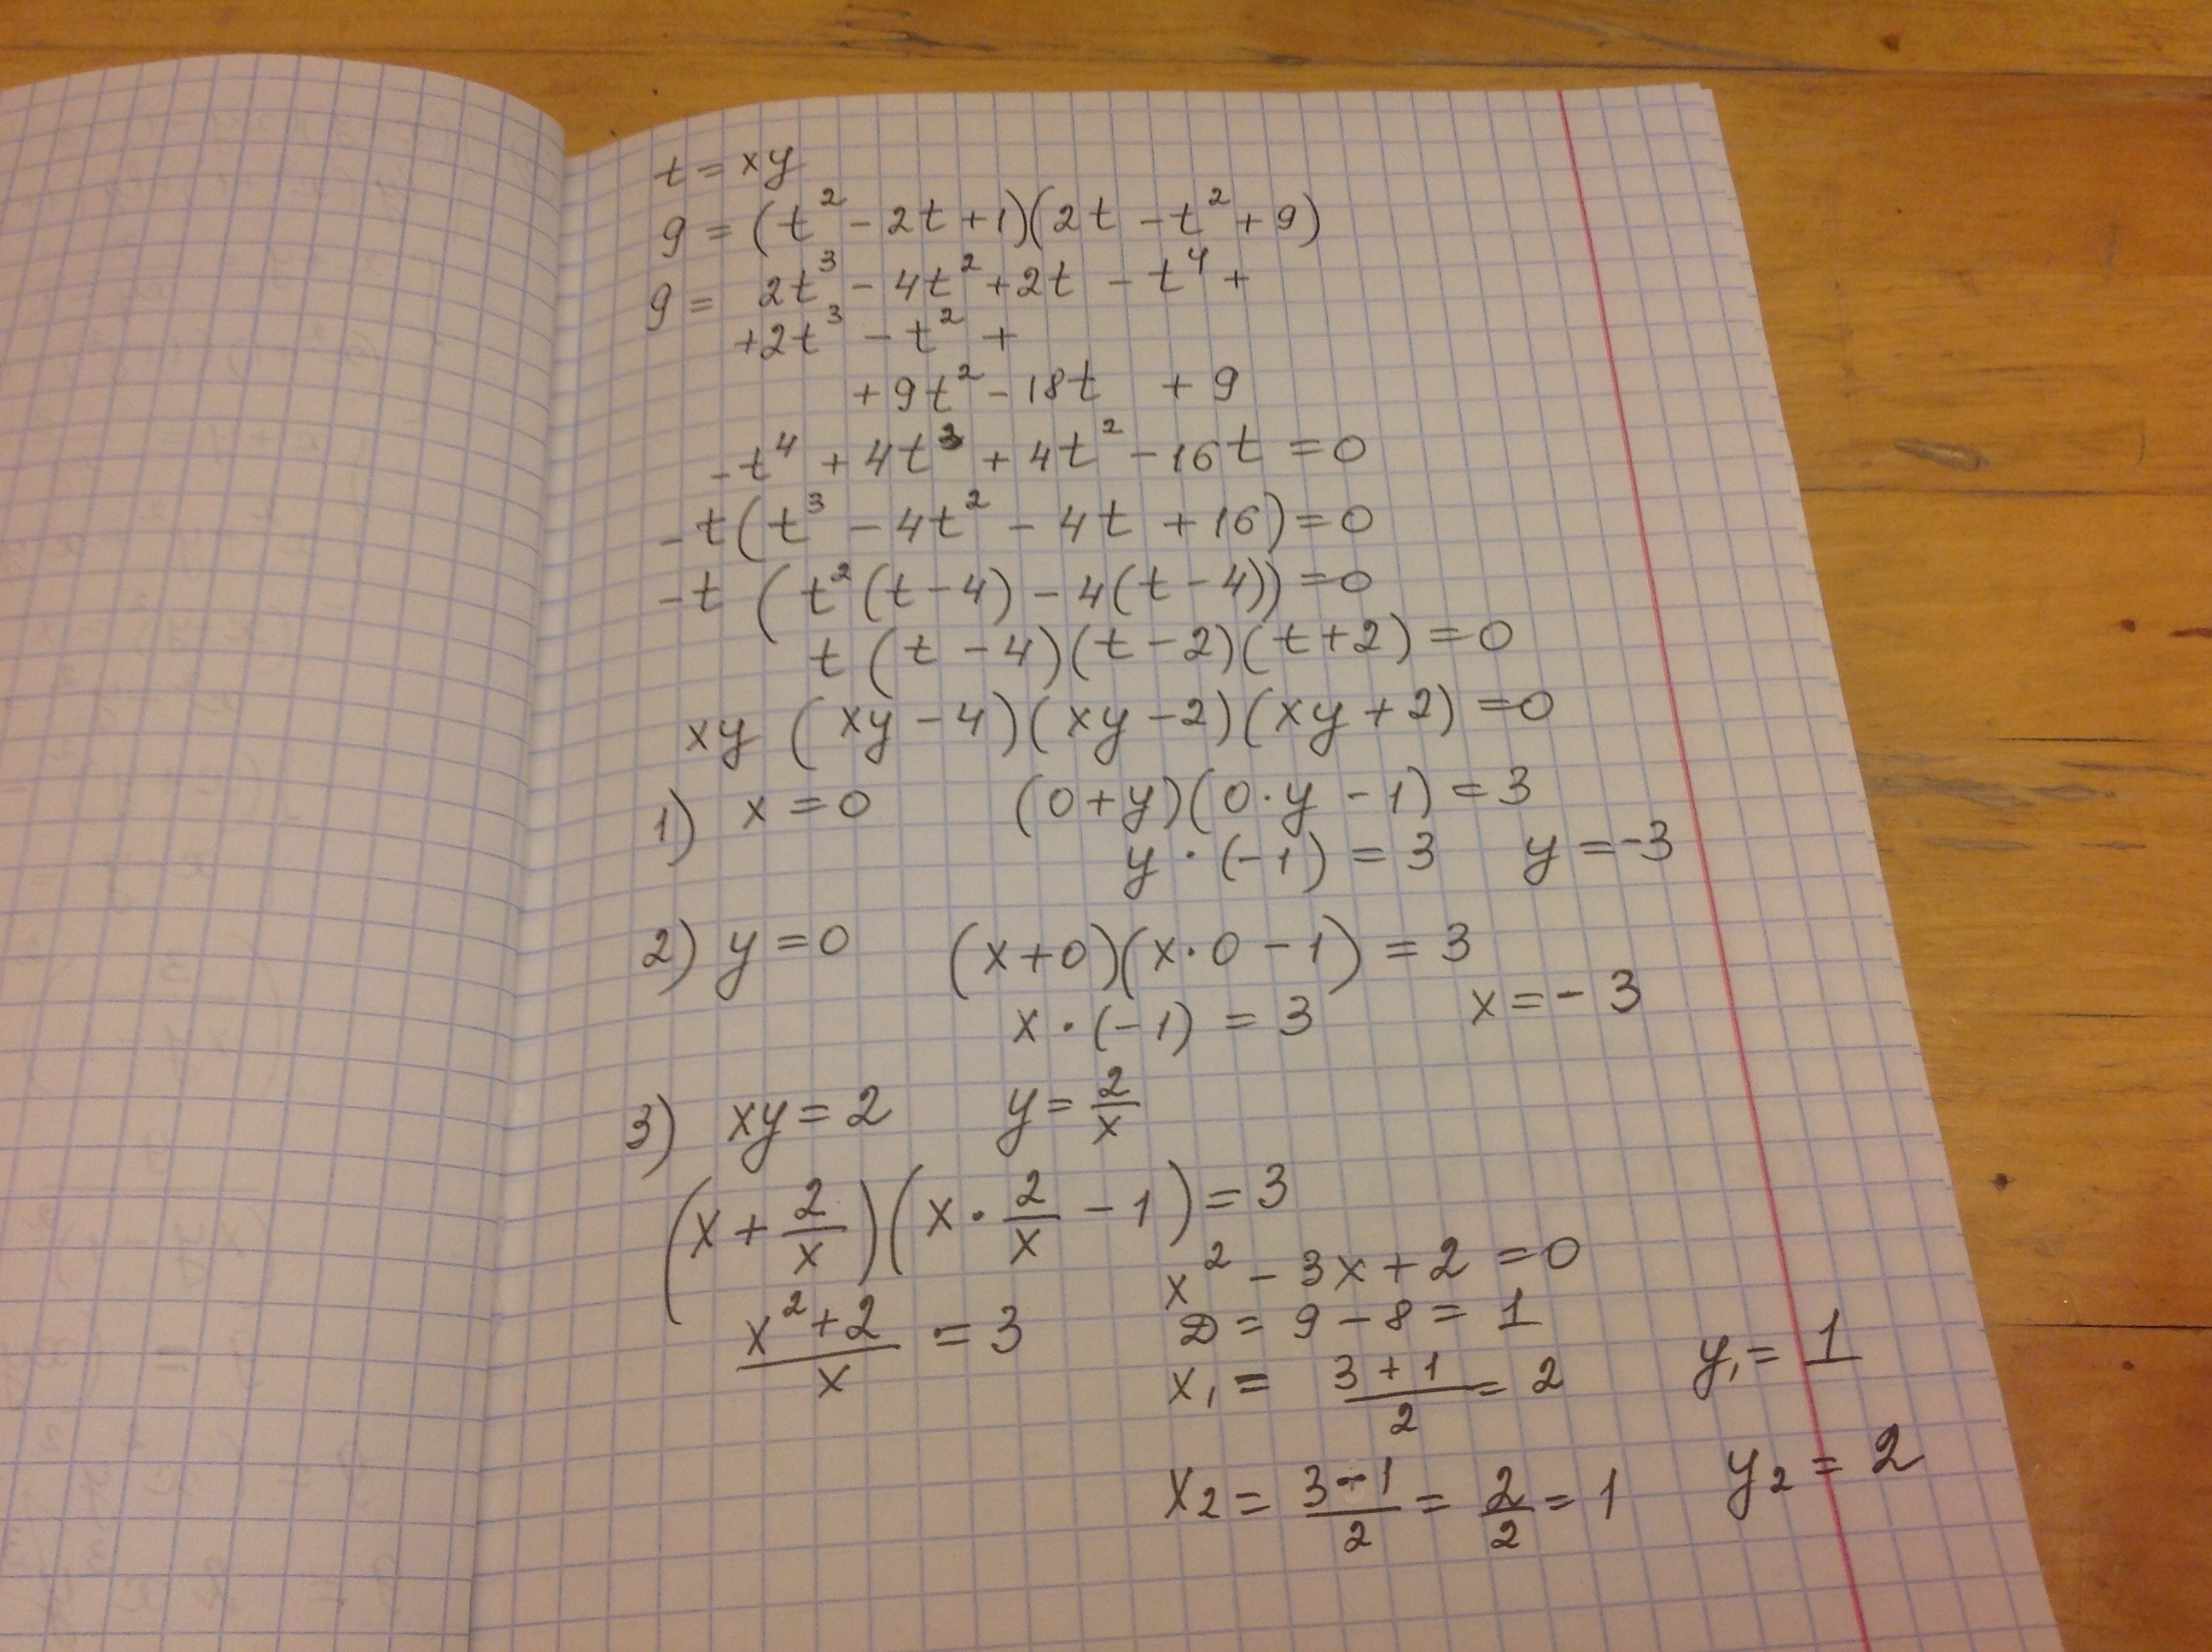 t = xy
9 = (t² - 2t + 1)(2t - t² + 9)
9 = 2t³ - 4t² + 2t - t⁴ +
+ 2t³ - t² +
+ 9t² - 18t + 9
-t⁴ + 4t³ + 4t² - 16t = 0
-t(t³ - 4t² - 4t + 16) = 0
-t (t²(t - 4) - 4(t - 4)) = 0
t (t - 4)(t - 2)(t + 2) = 0
xy (xy - 4)(xy - 2)(xy + 2) = 0
1) x = 0 (0 + y)(0 · y - 1) = 3
y · (-1) = 3 y = -3
2) y = 0 (x + 0)(x · 0 - 1) = 3
x · (-1) = 3 x = -3
3) xy = 2 y = 2/x
(x + 2/x)(x · 2/x - 1) = 3
x² - 3x + 2 = 0
(x² + 2)/x = 3 D = 9 - 8 = 1
x₁ = (3 + 1)/2 = 2 y₁ = 1
x₂ = (3 - 1)/2 = 2/2 = 1 y₂ = 2